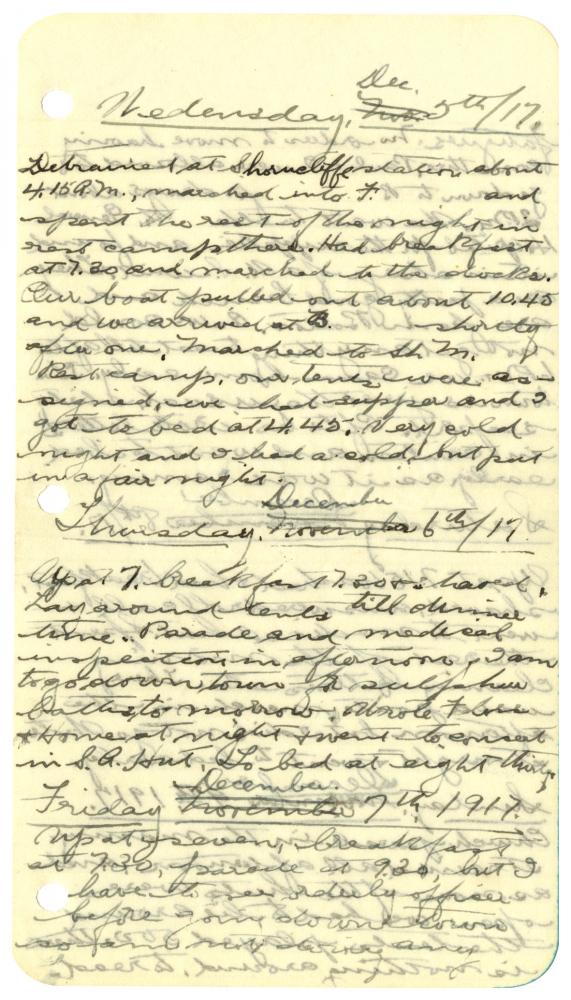 Dec.
Wedensday, Nov. 5th/17.
Detrained at Shorncliffe station about
4.15 A.M., marched into F. and
spent the rest of the night in
rest camp there. Had breakfast
at 7.30 and marched to the docks.
Our boat pulled out about 10.45
and we arrived at B. shortly
after one. Marched to St. M.
Rest camp, our tents were as-
signed, we had supper and I
got to bed at 4.45. Very cold
night and I had a cold, but put
in a fair night.
December
Thursday, November 6th/17.
Up at 7. breakfast 7.30 shaved.
Lay around tents till dinner
time. Parade and medical
inspection in afternoon, I am
to go down town for sulphur
baths to morrow. Wrote
& Home at night & went to concert
in S.A. Hut. To bed at eight thirty.
December
Friday November 7th 1917.
Up at seven, breakfast
at 7.30, parade at 9.30, but I
have to see orderly officer
before going down town
so am not doing any